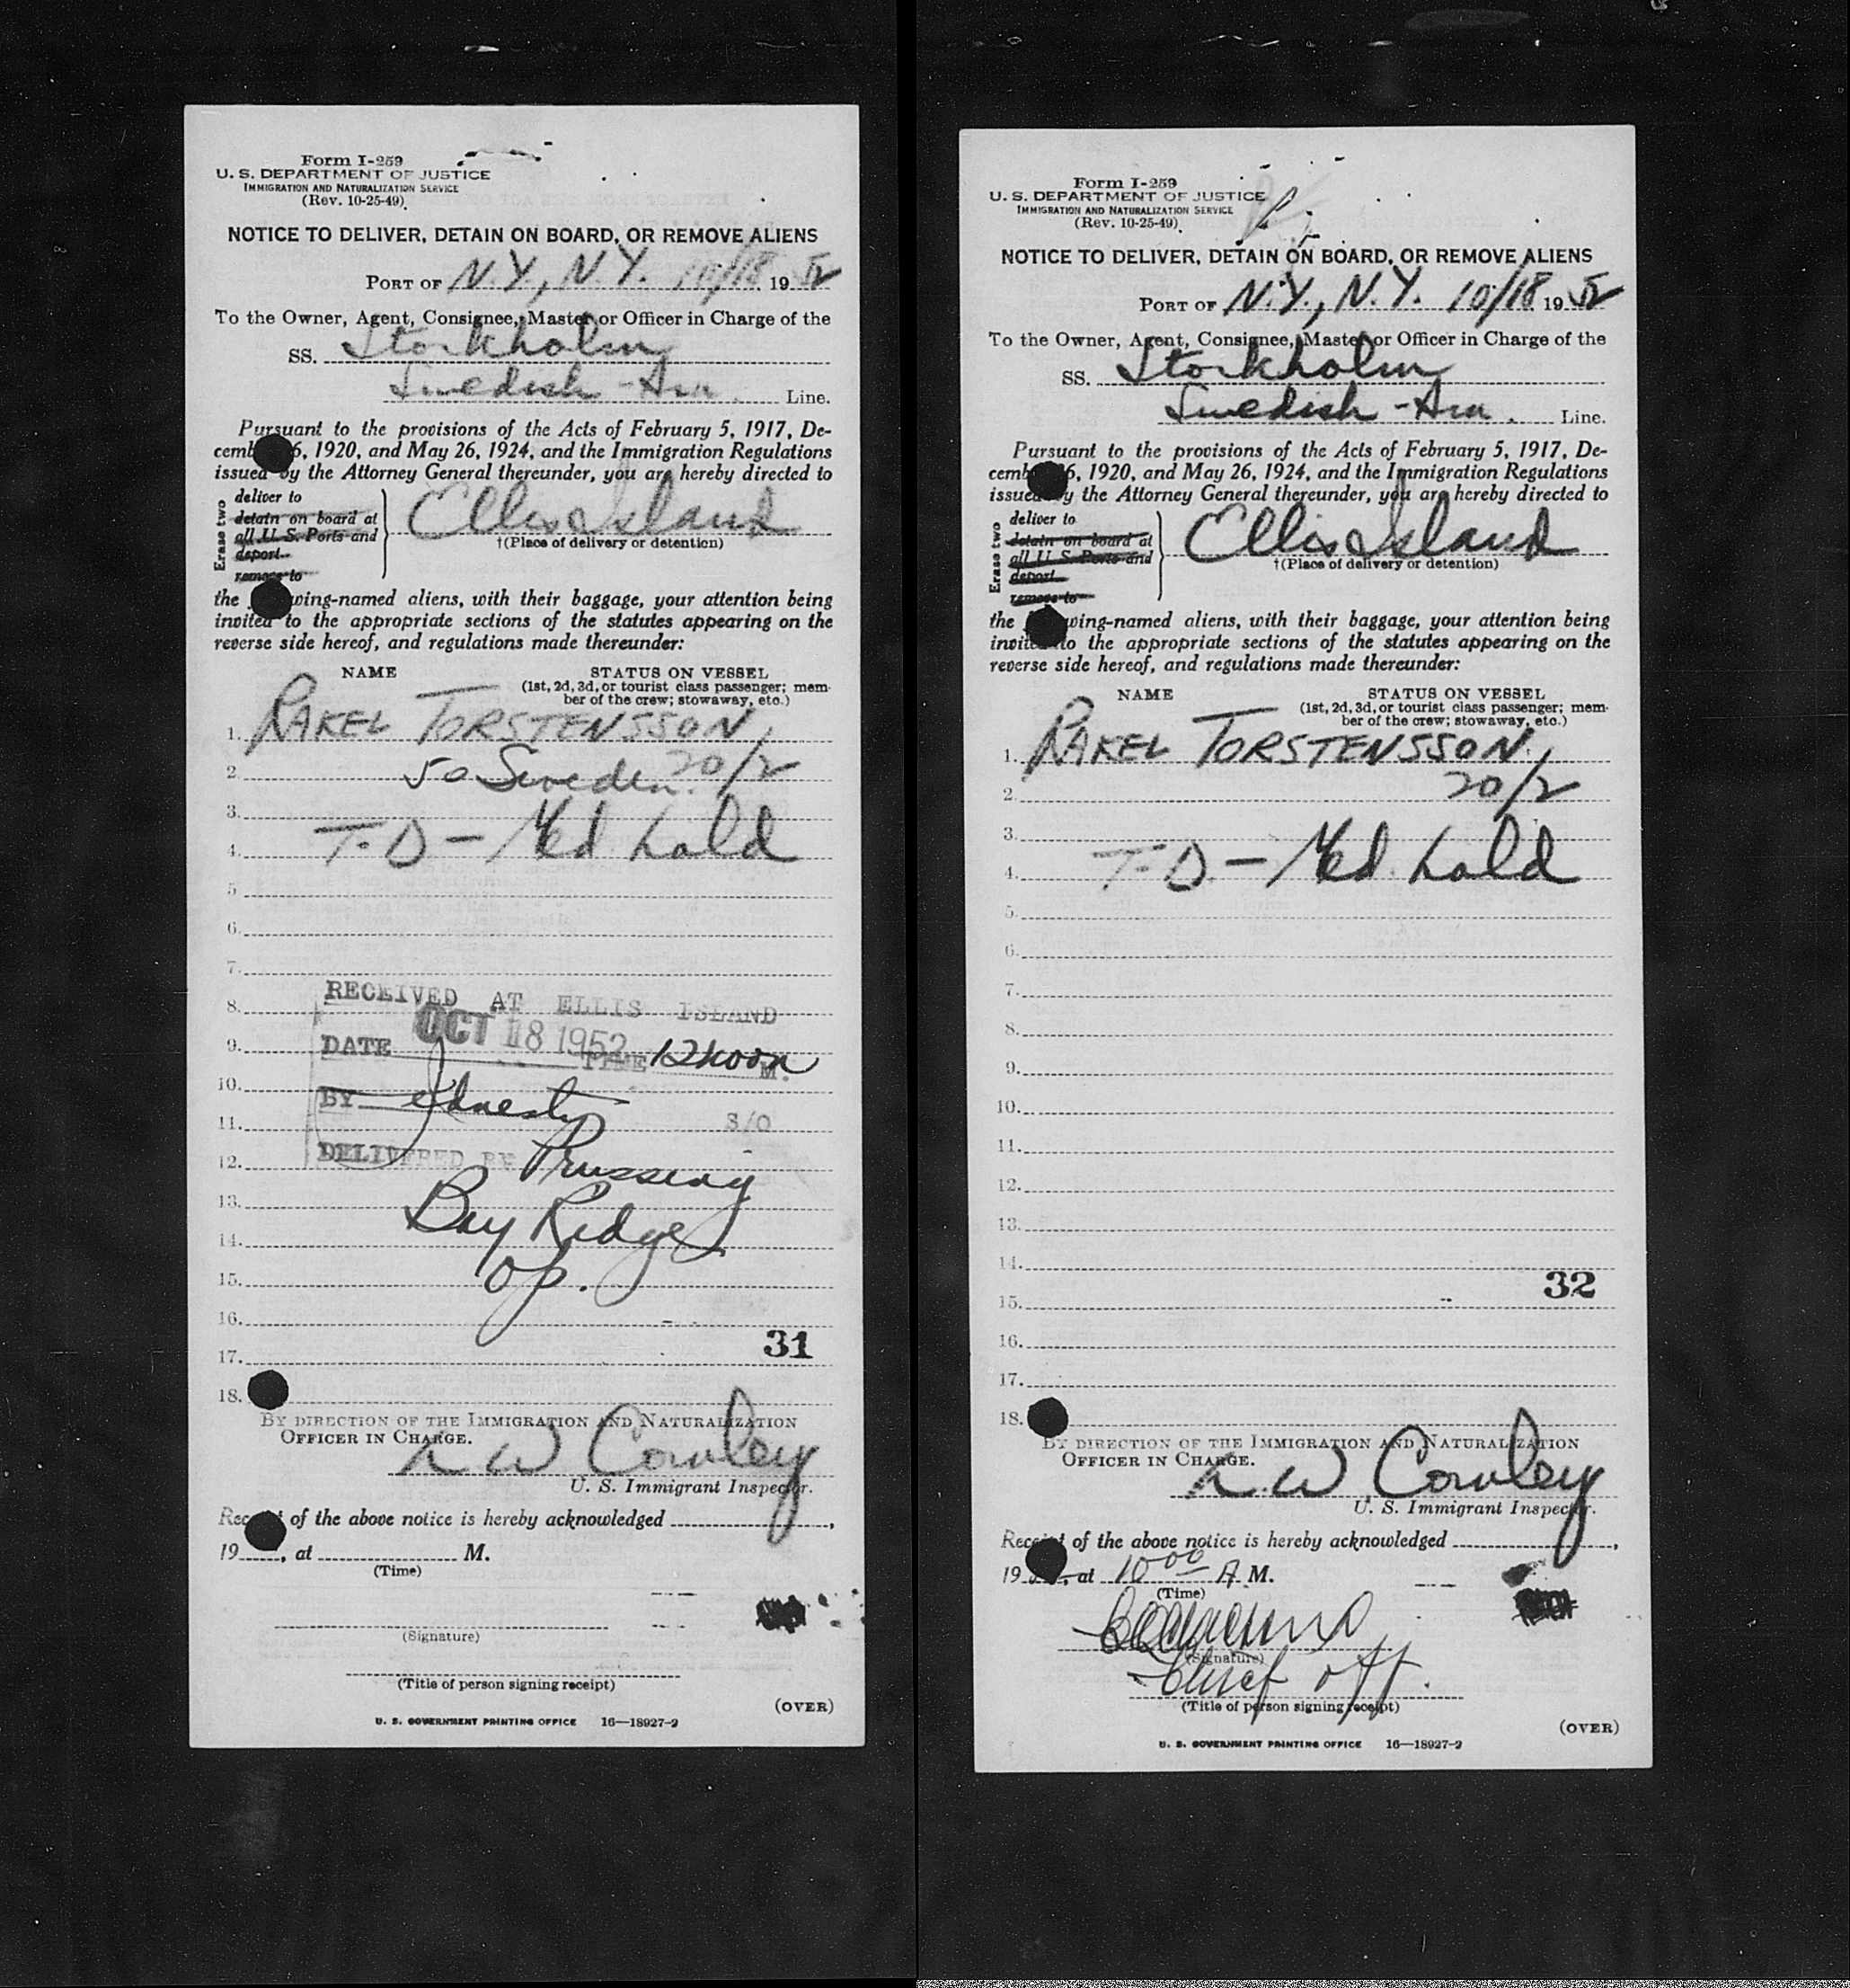 Form I-259
U. S. DEPARTMENT OF JUSTICE
IMMIGRATION AND NATURALIZATION SERVICE
(Rev. 10-25-49)
NOTICE TO DELIVER, DETAIN ON BOARD, OR REMOVE ALIENS
PORT OF N.Y., N.Y. 10/18 1952
To the Owner, Agent, Consignee, Master or Officer in Charge of the
SS. Stockholm
Swedish-Am. Line.
Pursuant to the provisions of the Acts of February 5, 1917, De-
cemb 6, 1920, and May 26, 1924, and the Immigration Regulations
issued by the Attorney General thereunder, you are hereby directed to
Erase two
deliver to
detain on board at
all U. S. Ports and
deport
remove to
Ellis Island
†(Place of delivery or detention)
the wing-named aliens, with their baggage, your attention being
invited to the appropriate sections of the statutes appearing on the
reverse side hereof, and regulations made thereunder:
NAME STATUS ON VESSEL
(1st, 2d, 3d, or tourist class passenger; mem-
ber of the crew; stowaway, etc.)
1. RAKEL TORSTENSSON,
2. 50 Sweden. 20/2
3.
4. T.D - Med hold
5.
6.
7.
RECEIVED AT ELLIS ISLAND
8.
9. DATE OCT 18 1952 TIME 12 noon M.
10.
BY
11. S/O
12. DELIVERED BY Prussing
13. Bay Ridge
14.
15. Op.
16.
31
17.
18.
BY DIRECTION OF THE IMMIGRATION AND NATURALIZATION
OFFICER IN CHARGE.
L W Cowley
U. S. Immigrant Inspector.
Rec t of the above notice is hereby acknowledged
19 , at M.
(Time)
(Signature)
(Title of person signing receipt)
(OVER)
U. S. GOVERNMENT PRINTING OFFICE 16—18927-2
Form I-259
U. S. DEPARTMENT OF JUSTICE
IMMIGRATION AND NATURALIZATION SERVICE
(Rev. 10-25-49)
NOTICE TO DELIVER, DETAIN ON BOARD, OR REMOVE ALIENS
PORT OF N.Y., N.Y. 10/18 1952
To the Owner, Agent, Consignee, Master or Officer in Charge of the
SS. Stockholm
Swedish-Am. Line.
Pursuant to the provisions of the Acts of February 5, 1917, De-
cemb 6, 1920, and May 26, 1924, and the Immigration Regulations
issued by the Attorney General thereunder, you are hereby directed to
Erase two
deliver to
detain on board at
all U. S. Ports and
deport
remove to
Ellis Island
†(Place of delivery or detention)
the wing-named aliens, with their baggage, your attention being
invited to the appropriate sections of the statutes appearing on the
reverse side hereof, and regulations made thereunder:
NAME STATUS ON VESSEL
(1st, 2d, 3d, or tourist class passenger; mem-
ber of the crew; stowaway, etc.)
1. RAKEL TORSTENSSON,
2. 20/2
3.
4. T-D. - Med. hold
5.
6.
7.
8.
9.
10.
11.
12.
13.
14.
32
15.
16.
17.
18.
BY DIRECTION OF THE IMMIGRATION AND NATURALIZATION
OFFICER IN CHARGE.
L. W. Cowley
U. S. Immigrant Inspector.
Rece t of the above notice is hereby acknowledged
19 , at 10 00 A M.
(Time)
(Signature)
Chief off.
(Title of person signing receipt)
(OVER)
U. S. GOVERNMENT PRINTING OFFICE 16—18927-2